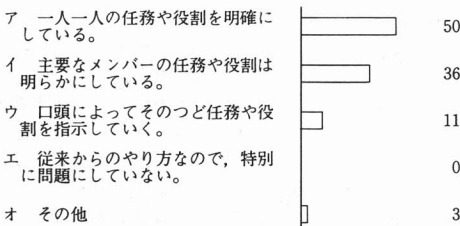 ア　一人一人の任務や役割を明確に　50
している。
イ　主要なメンバーの任務や役割は　36
明らかにしている。
ウ　口頭によってそのつど任務や役　11
割を指示していく。
エ　従来からのやり方なので，特別　0
に問題にしていない。
オ　その他　3